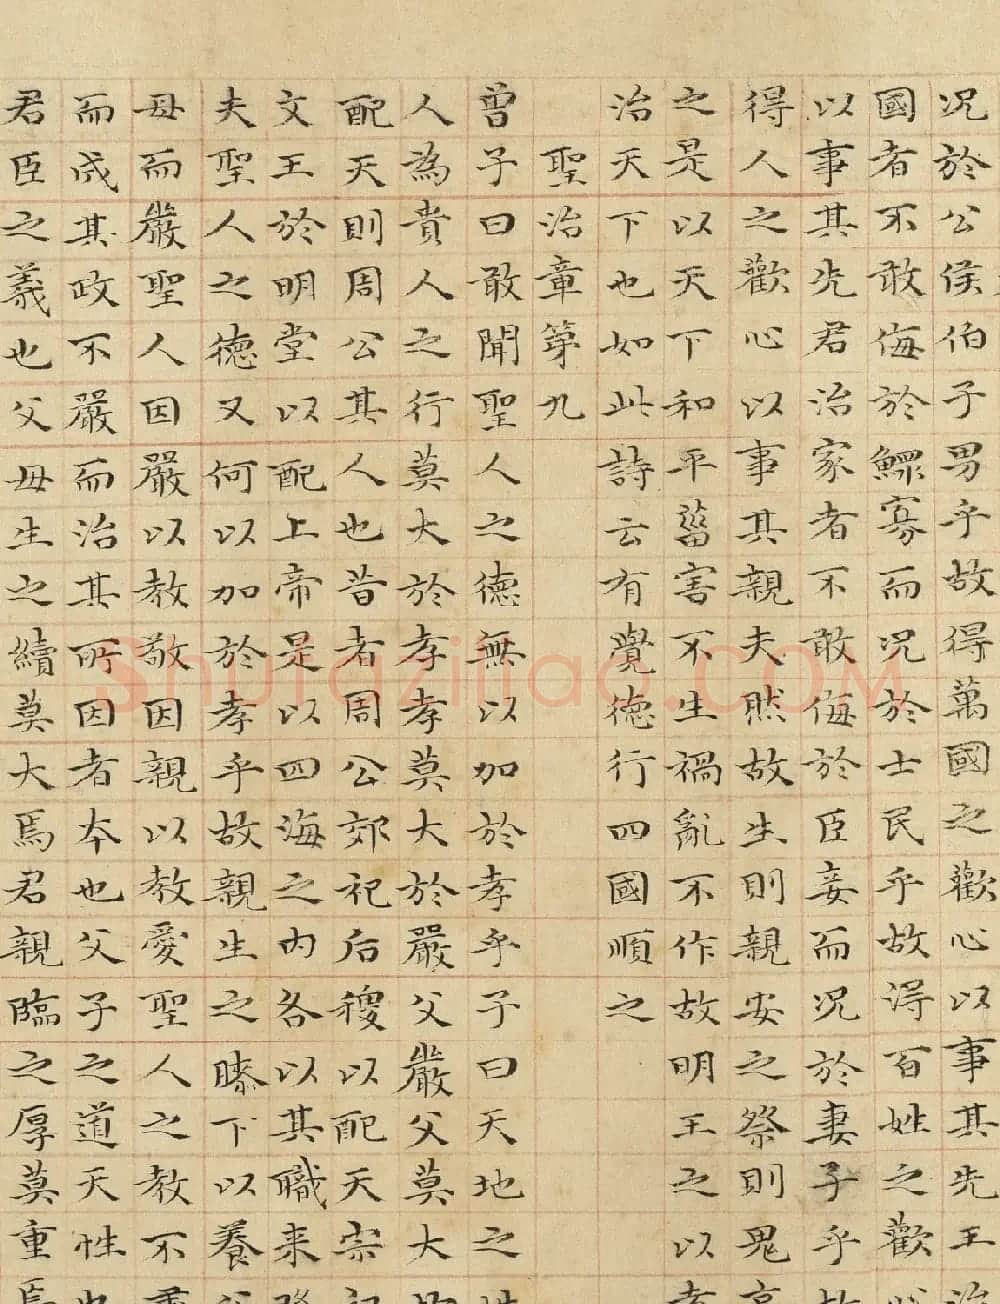 况於公侯伯子男乎故得萬國之歡心以事其先王治
國者不敢侮於鰥寡而况於士民乎故得百姓之歡心
以事其先君治家者不敢侮於臣妾而况於妻子乎故
得人之歡心以事其親夫然故生則親安之祭則鬼享
之是以天下和平灾害不生禍亂不作故明王之以孝
治天下也如此詩云有覺德行四國順之
聖治章第九
曾子曰敢聞聖人之德無以加於孝乎子曰天地之性
人為貴人之行莫大於孝孝莫大於嚴父嚴父莫大
配天則周公其人也昔者周公郊祀后稷以配天宗祀
文王於明堂以配上帝是以四海之内各以其職来
夫聖人之德又何以加於孝乎故親生之膝下以養父
母而嚴聖人因嚴以教敬因親以教愛聖人之教不肅
而成其政不嚴而治其所因者本也父子之道天性也
君臣之義也父母生之續莫大焉君親臨之厚莫重焉
Shufaziliao.COM